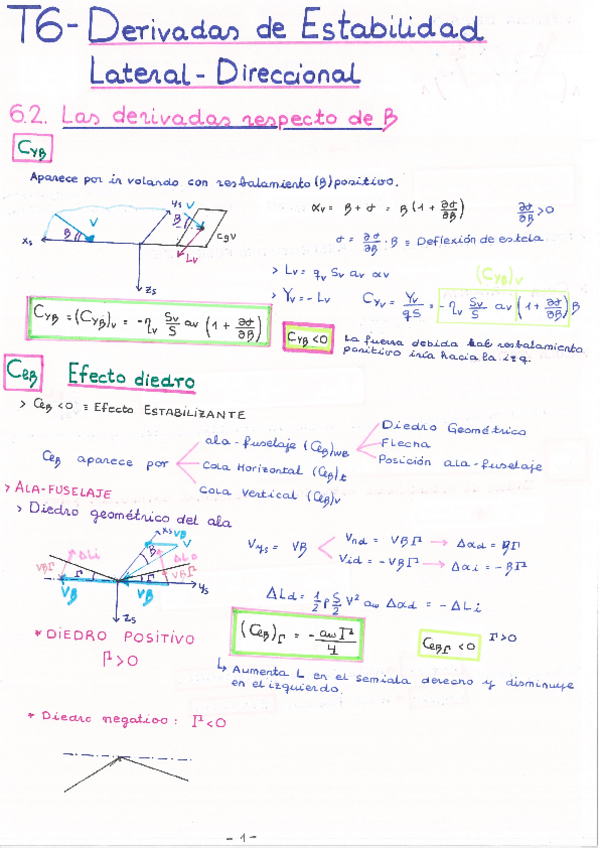 T6- Derivadas de Estabilidad
Lateral - Direccional
6.2. Las derivadas respecto de β
Cyβ
Aparece por ir volando con resbalamiento (β) positivo.
xs β V ys β V Lv CgV zs
αv = β + σ = β (1 + ∂σ/∂β) ∂σ/∂β > 0
σ = ∂σ/∂β · β ≡ Deflexión de estela
> Lv = qv Sv av αv
(Cyβ)v
> Yv = - Lv Cyv = Yv/qS = - ηv Sv/S av (1 + ∂σ/∂β) β
Cyβ = (Cyβ)v = - ηv Sv/S av (1 + ∂σ/∂β)
Cyβ < 0 La fuerza debida al resbalamiento
positivo iría hacia la izq.
Clβ Efecto diedro
> Clβ < 0 ≡ Efecto ESTABILIZANTE
Clβ aparece por
ala - fuselaje (Clβ)wb
Cola Horizontal (Clβ)t
Cola Vertical (Clβ)v
Diedro Geométrico
Flecha
Posición ala-fuselaje
> ALA-FUSELAJE
> Diedro geométrico del ala
xs Vβ V β ΔLi ΔLd VβΓ Γ Γ VβΓ Vβ Vβ ys zs
Vys = Vβ
Vnd = VβΓ → Δαd = βΓ
Vid = - VβΓ → Δαi = - βΓ
ΔLd = 1/2 ρ S/2 V² aw Δαd = - ΔLi
* DIEDRO POSITIVO
Γ > 0
(Clβ)Γ = - awΓ/4
ClβΓ < 0 Γ>0
↳ Aumenta L en el semiala derecho y disminuye
en el izquierdo.
* Diedro negativo: Γ < 0
- 1 -